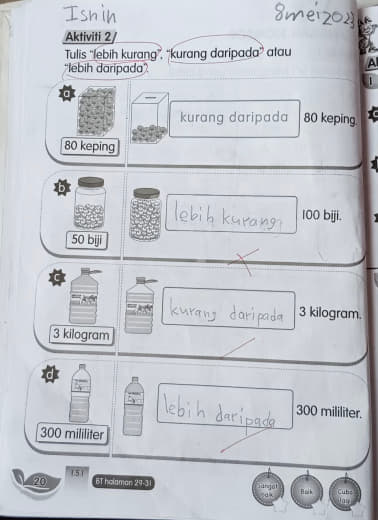 Isnin
8mei2023
Aktiviti 2
Tulis "lebih kurang", "kurang daripada" atau
"lebih daripada".
a
kurang daripada 80 keping.
80 keping
b
lebih kurang 100 biji.
50 biji
c
kurang daripada 3 kilogram.
3 kilogram
d
lebih daripada 300 mililiter.
300 mililiter
20
1.5.1
BT halaman 29-31
Sangat baik
Baik
Cuba lagi